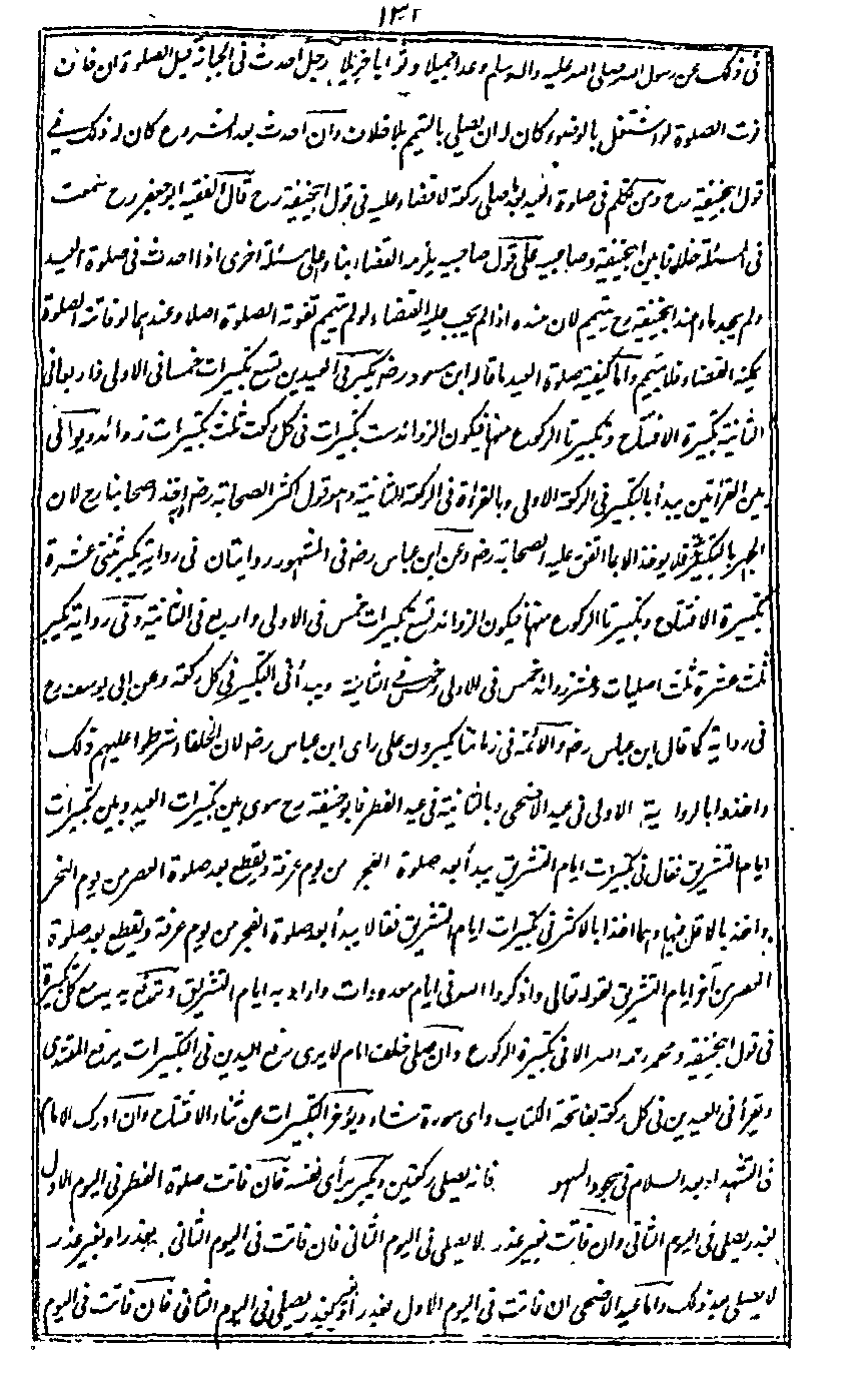 ١٣٢
فى ذلك عن رسول الله صلى الله عليه واله وسلم وعدا جميلا وثوابا جزيلا رجل احدث فى الجبانة قبل الصلوة ان خاف
فوت الصلوة لو اشتغل بالوضوء كان له ان يصلى بالتيمم بلا خلاف وان احدث بعد الشروع كان له ذلك فى
قول ابيحنيفة رح ومن تكلم فى صلوة العيد بعد ما صلى ركعة لا قضاء عليه فى قول ابيحنيفة رح قال الفقيه ابو جعفر رح سمعت
فى المسئلة خلافا بين ابيحنيفة وصاحبيه على قول صاحبيه يلزمه القضاء بناء على مسئلة اخرى اذا احدث فى صلوة العيد
ولم يجد ماء عند ابيحنيفة رح يتيمم لان عنده اذا لم يجب عليه القضاء لو لم يتيمم تفوته الصلوة اصلا وعندهما لو فاتته الصلوة
يمكنه القضاء فلا يتيمم واما كيفية صلوة العيد ما قاله ابن مسعود رض يكبر فى العيدين تسع تكبيرات خمسا فى الاولى واربعا فى
الثانية تكبيرة الافتتاح وتكبيرتا الركوع منها فيكون الزوائد ست تكبيرات فى كل ركعت ثلث تكبيرات زوائد ويوالى
بين القرأتين يبدأ بالتكبير فى الركعة الاولى وبالقرأة فى الركعة الثانية وهو قول اكثر الصحابة رض وبه اخذ اصحابنا رح لان
الجهر بالتكبير فلا يوخذ الا بما اتفق عليه الصحابة رض وعن ابن عباس رض فى المشهور روايتان فى رواية يكبر ثنتى عشرة
تكبيرة الافتتاح وتكبيرتا الركوع منها فيكون الزوائد تسع تكبيرات خمس فى الاولى واربع فى الثانية وفى رواية يكبر
ثلث عشرة ثلث اصليات وعشر زوائد خمس فى الاولى وخمس فى الثانية ويبدأ فى التكبير فى كل ركعة وعن ابى يوسف رح
فى رواية كما قال ابن عباس رض والائمة فى زماننا يكبرون على راى ابن عباس رض لان الخلفاء شرطوا عليهم ذلك
واخذوا بالرواية الاولى فى عيد الاضحى وبالثانية فى عيد الفطر فابو حنيفة رح سوى بين تكبيرات العيد وبين تكبيرات
ايام التشريق فقال فى تكبيرات ايام التشريق يبدأ بعد صلوة الفجر من يوم عرفة ويقطع بعد صلوة العصر من يوم النحر
واخذ بالاقل فيها وهما اخذا بالاكثر فى تكبيرات ايام التشريق فقالا يبدأ بعد صلوة الفجر من يوم عرفة ويقطع بعد صلوة
العصر من آخر ايام التشريق لقوله تعالى واذكروا الله فى ايام معدودات واراد به ايام التشريق ويرفع يديه مع كل تكبيرة
فى قول ابيحنيفة ومحمد رحمه الله الا فى تكبيرة الركوع وان صلى خلف امام لا يرى رفع اليدين فى التكبيرات يرفع المقتدى
ويقرأ فى العيدين فى كل ركعة بفاتحة الكتاب واى سورة شاء ويؤخر التكبيرات عن ثناء الافتتاح وان ادرك الامام
فى التشهد او بعد السلام فى سجود السهو فانه يصلى ركعتين ويكبر برأى نفسه فان فاتت صلوة الفطر فى اليوم الاول
بعذر يصلى فى اليوم الثانى وان فاتت بغير عذر لا يصلى فى اليوم الثانى فان فاتت فى اليوم الثانى بعذر او بغير عذر
لا يصلى بعد ذلك واما عيد الاضحى ان فاتت فى اليوم الاول بعذر او بغير عذر يصلى فى اليوم الثانى فان فاتت فى اليوم